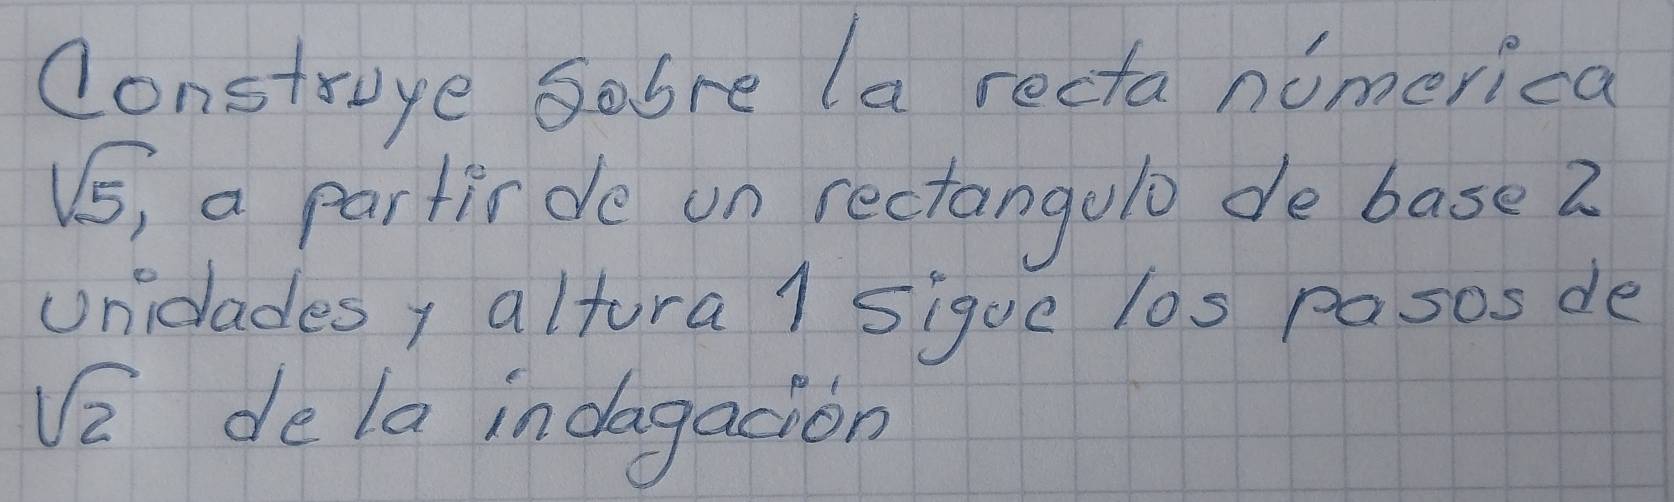 Construye sobre la recta númerica
√5, a partir de un rectangulo de base 2
unidades y altura 1 sigue los pasos de
√2 de la indagación